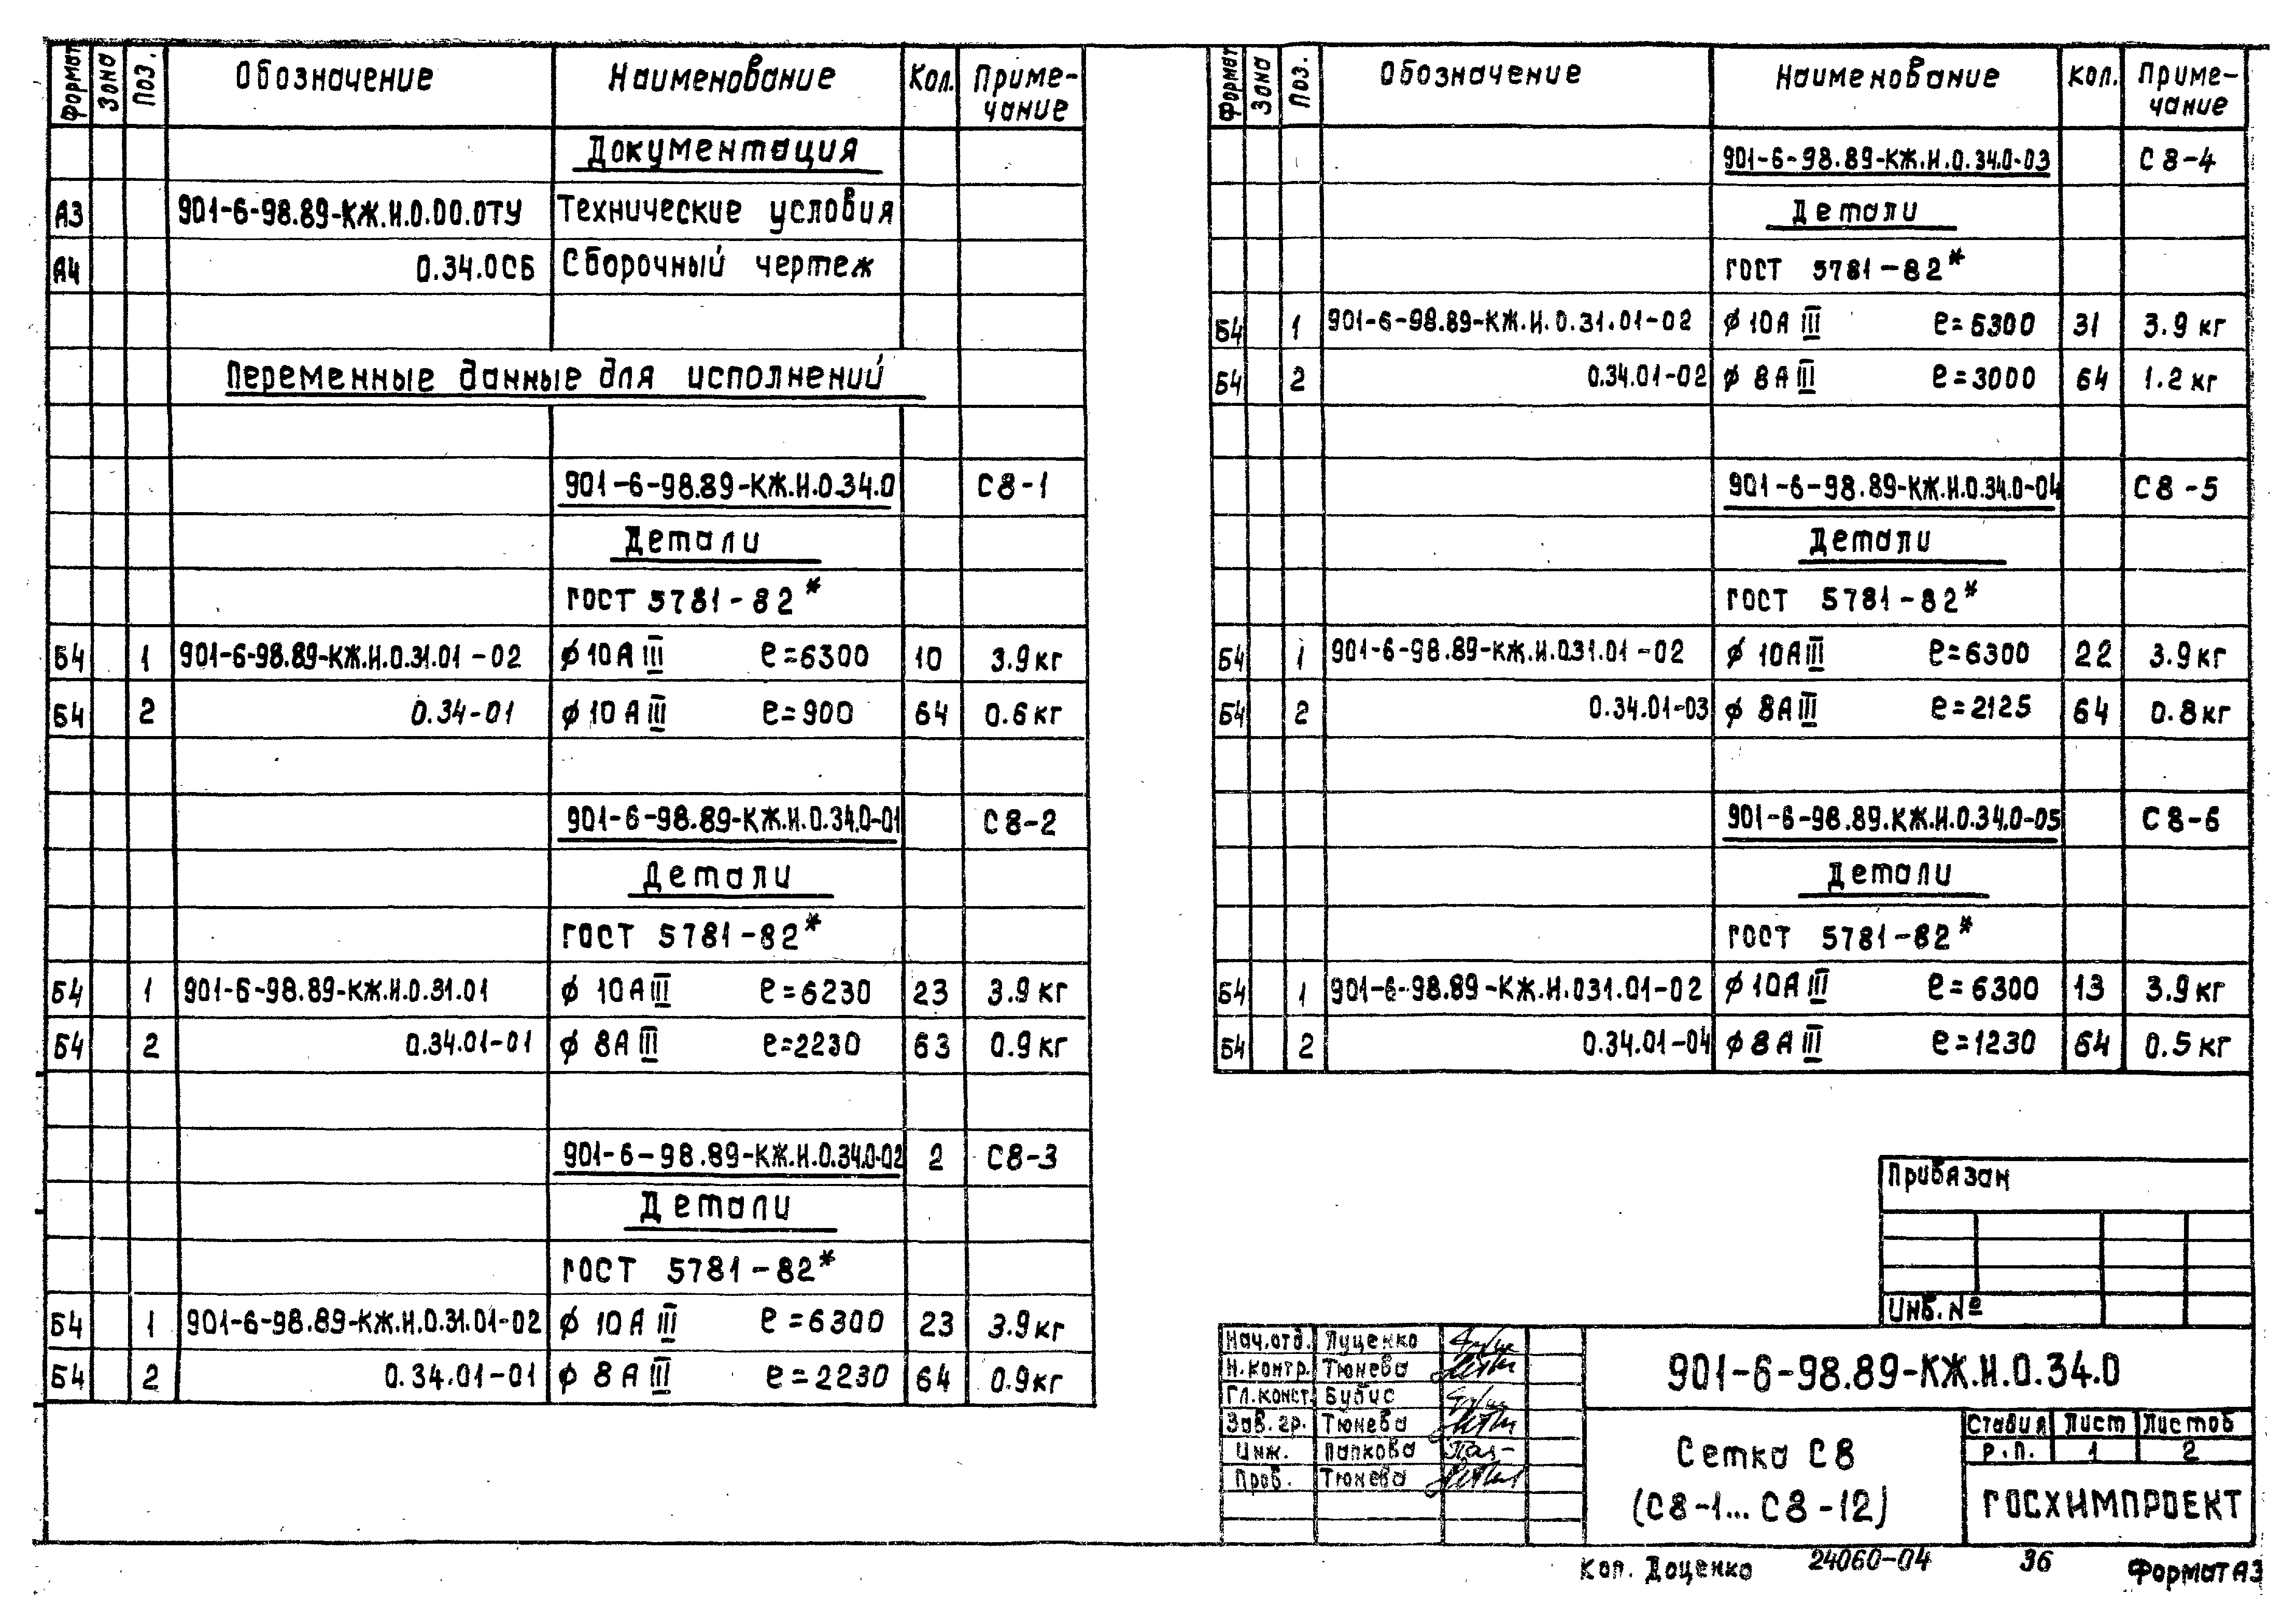 Формат Зона Поз. Обозначение Наименование Кол. Приме-
чание
Документация
А3 901-6-98.89-КЖ.И.0.00.0ТУ Технические условия
А4 0.34.0СБ Сборочный чертеж
Переменные данные для исполнений
901-6-98.89-КЖ.И.0.34.0 С8-1
Детали
ГОСТ 5781-82*
Б4 1 901-6-98.89-КЖ.И.0.31.01-02 ϕ10АIII ℓ=6300 10 3.9кг
Б4 2 0.34-01 ϕ10АIII ℓ=900 64 0.6кг
901-6-98.89-КЖ.И.0.34.0-01 С8-2
Детали
ГОСТ 5781-82*
Б4 1 901-6-98.89-КЖ.И.0.31.01 ϕ 10АIII ℓ=6230 23 3.9кг
Б4 2 0.34.01-01 ϕ 8АIII ℓ=2230 63 0.9кг
901-6-98.89-КЖ.И.0.34.0-02 2 С8-3
Детали
ГОСТ 5781-82*
Б4 1 901-6-98.89-КЖ.И.0.31.01-02 ϕ 10АIII ℓ=6300 23 3.9кг
Б4 2 0.34.01-01 ϕ 8АIII ℓ=2230 64 0.9кг
Формат Зона Поз. Обозначение Наименование Кол. Приме-
чание
901-6-98.89-КЖ.И.0.34.0-03 С8-4
Детали
ГОСТ 5781-82*
Б4 1 901-6-98.89-КЖ.И.0.31.01-02 ϕ 10АIII ℓ=6300 31 3.9кг
Б4 2 0.34.01-02 ϕ 8АIII ℓ=3000 64 1.2кг
901-6-98.89-КЖ.И.0.34.0-04 С8-5
Детали
ГОСТ 5781-82*
Б4 1 901-6-98.89-КЖ.И.031.01-02 ϕ 10АIII ℓ=6300 22 3.9кг
Б4 2 0.34.01-03 ϕ 8АIII ℓ=2125 64 0.8кг
901-6-98.89.КЖ.И.0.34.0-05 С8-6
Детали
ГОСТ 5781-82*
Б4 1 901-6-98.89-КЖ.И.031.01-02 ϕ 10АIII ℓ=6300 13 3.9кг
Б4 2 0.34.01-04 ϕ 8АIII ℓ=1230 64 0.5кг
Привязан
Инв.№
Нач.отд. Луценко
Н.контр. Тюнева
Гл.конст. Бубис
Зав.гр. Тюнева
Инж. Папкова
Пров. Тюнева
901-6-98.89-КЖ.И.0.34.0
Сетка С8
(С8-1...С8-12)
Стадия Лист Листов
Р.П. 1 2
ГОСХИМПРОЕКТ
Коп. Доценко 24060-04 36 Формат А3